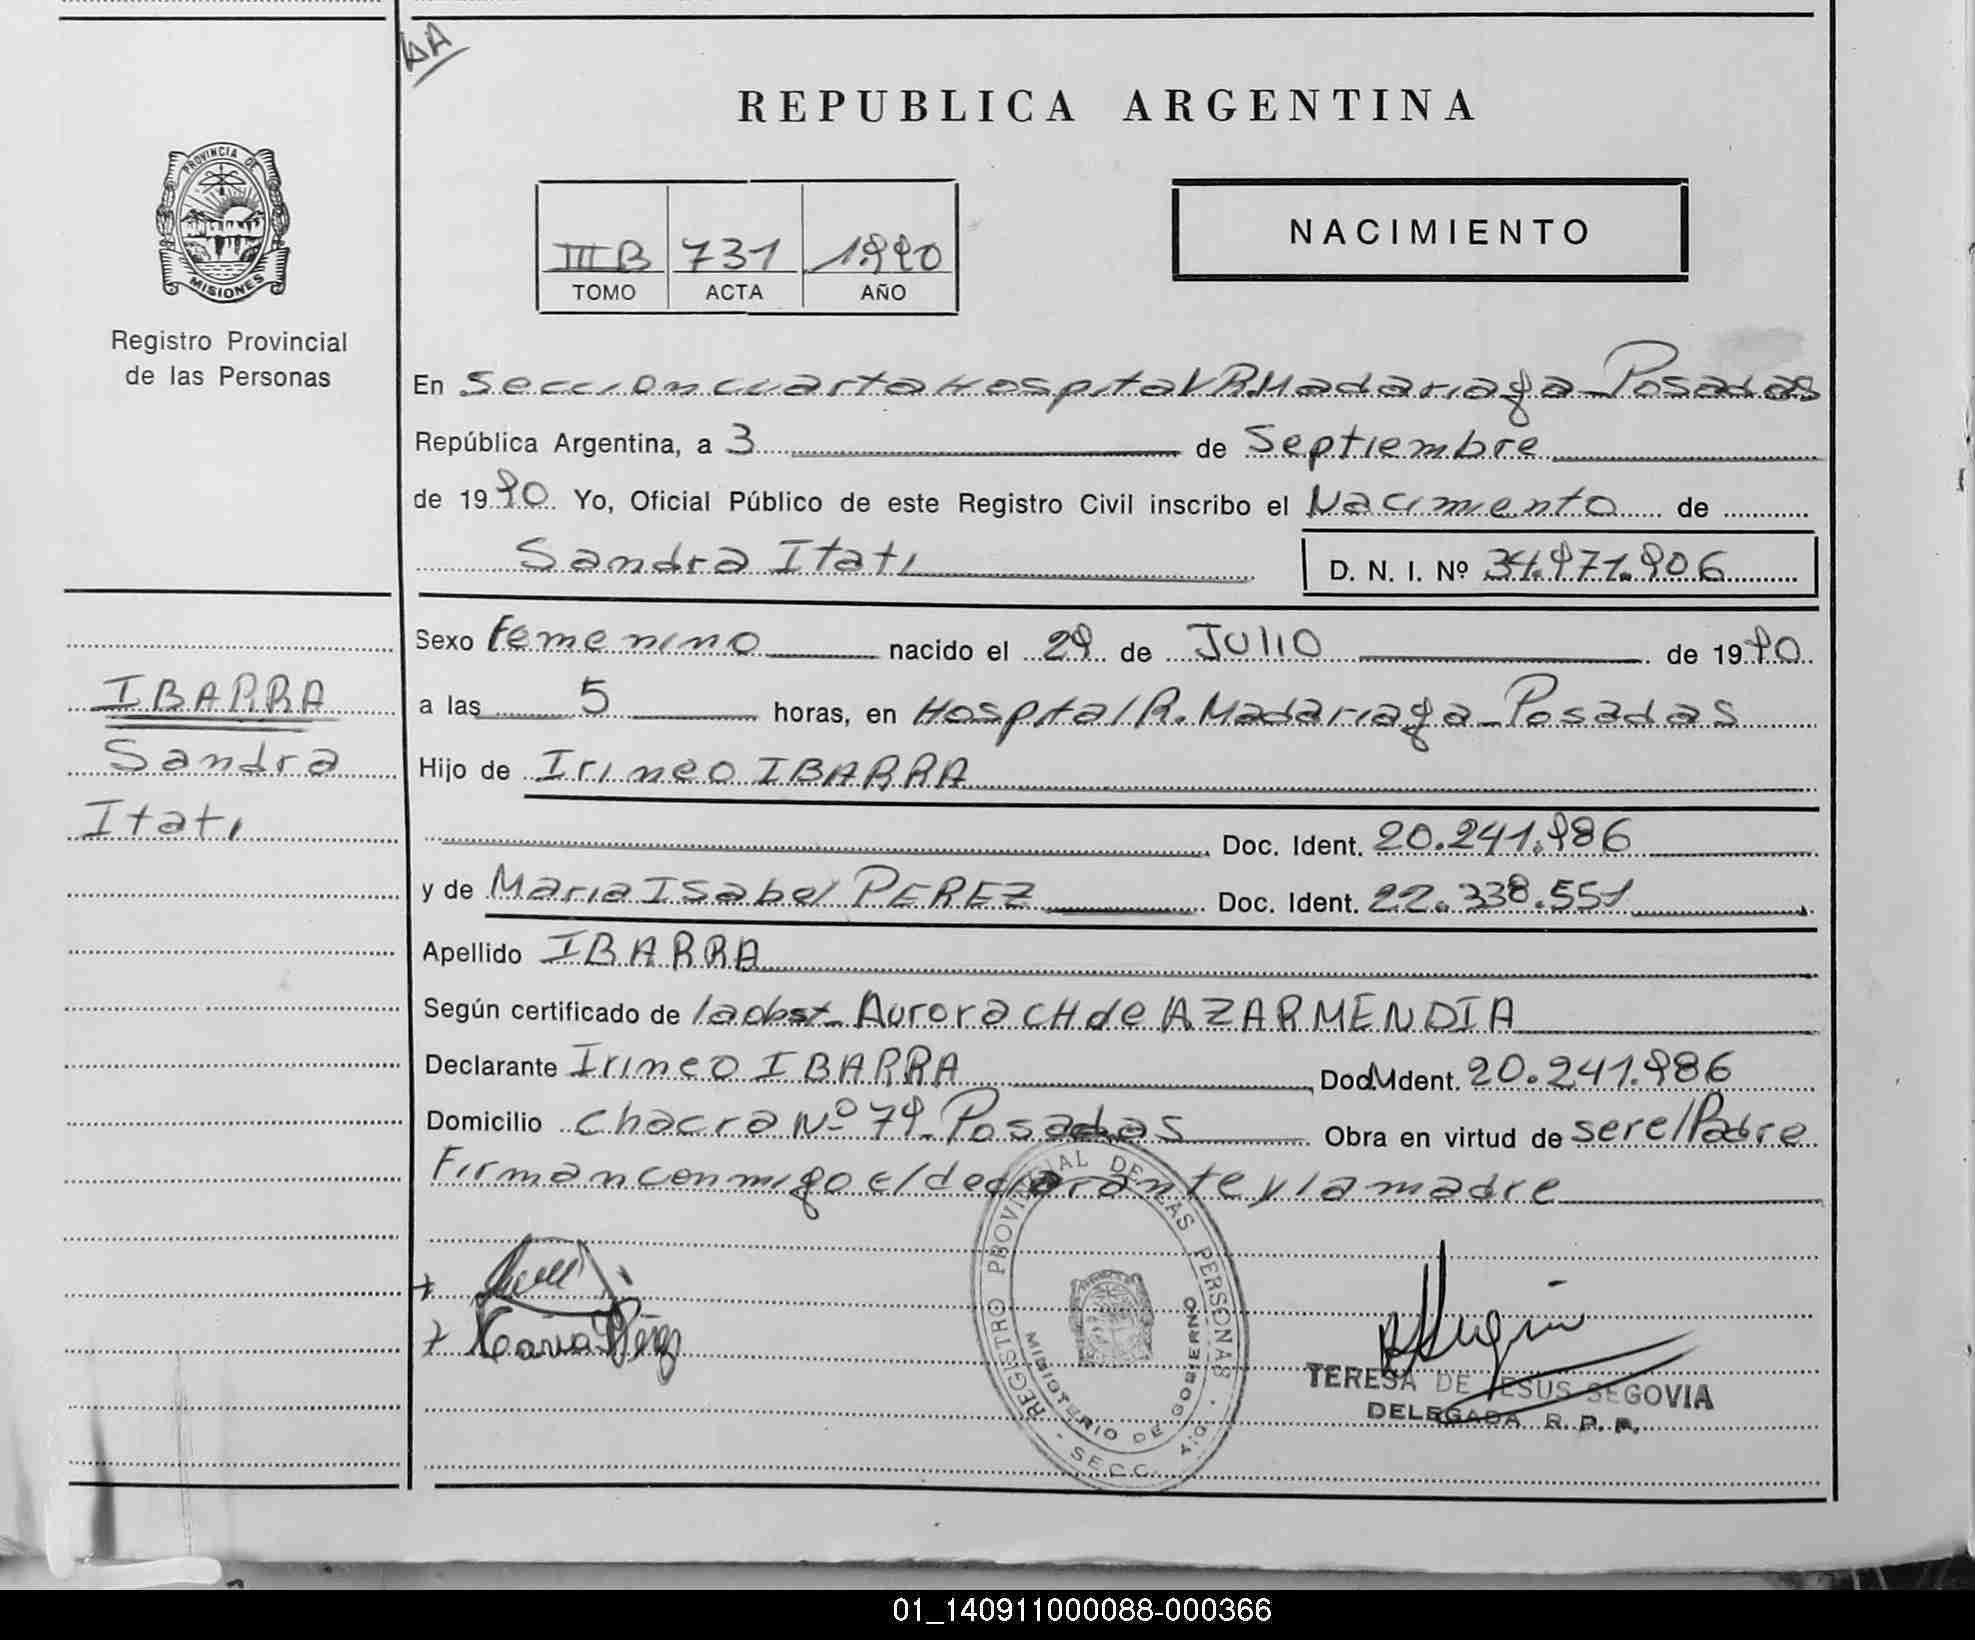 LA
REPUBLICA ARGENTINA
PROVINCIA DE
MISIONES
Registro Provincial
de las Personas
III B 731 1990
TOMO ACTA AÑO
NACIMIENTO
En Seccion cuarta Hospital R. Madariaga _ Posadas
República Argentina, a 3 de Septiembre
de 1990 Yo, Oficial Público de este Registro Civil inscribo el Nacimiento de
Sandra Itati D. N. I. Nº 34.971.906
Sexo Femenino nacido el 29 de Julio de 1990
a las 5 horas, en Hospital R. Madariaga _ Posadas
Hijo de Irineo IBARRA
Doc. Ident. 20.241.986
y de Maria Isabel PEREZ Doc. Ident. 22.338.551
Apellido IBARRA
Según certificado de la obst. Aurora CH de AZARMENDIA
Declarante Irineo IBARRA Doc. Ident. 20.241.986
Domicilio chacra Nº 79 _ Posadas Obra en virtud de ser el Padre
Firman conmigo el declarante y la madre
IBARRA
Sandra
Itati
Maria Pérez
REGISTRO PROVINCIAL DE LAS PERSONAS
MINISTERIO DE GOBIERNO
- SECC. 4º -
TERESA DE JESUS SEGOVIA
DELEGADA R. P. P.
01_140911000088-000366